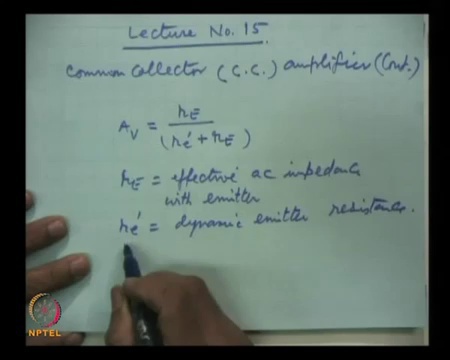 Lecture No. 15.
Common Collector (C.C.) amplifier (Cont.)
A_V = r_E / (r_e' + r_E)
r_E = effective ac impedance
with emitter
r_e' = dynamic emitter resistance.
NPTEL